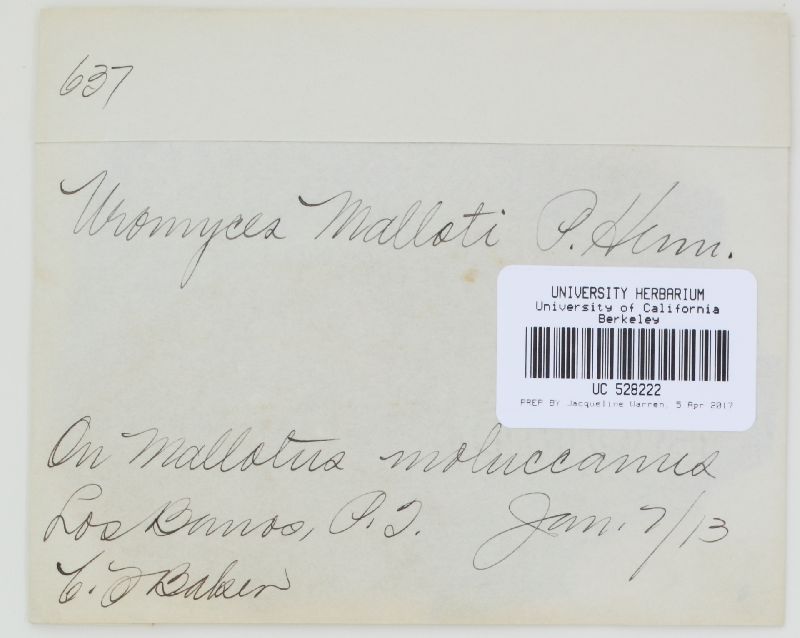 637
Uromyces Malloti P. Henn.
UNIVERSITY HERBARIUM
University of California
Berkeley
UC 528222
PREP BY Jacqueline Warren, 5 Apr 2017
On Mallotus moluccanus
Los Banos, P.I. Jan. 7/13
C. F Baker